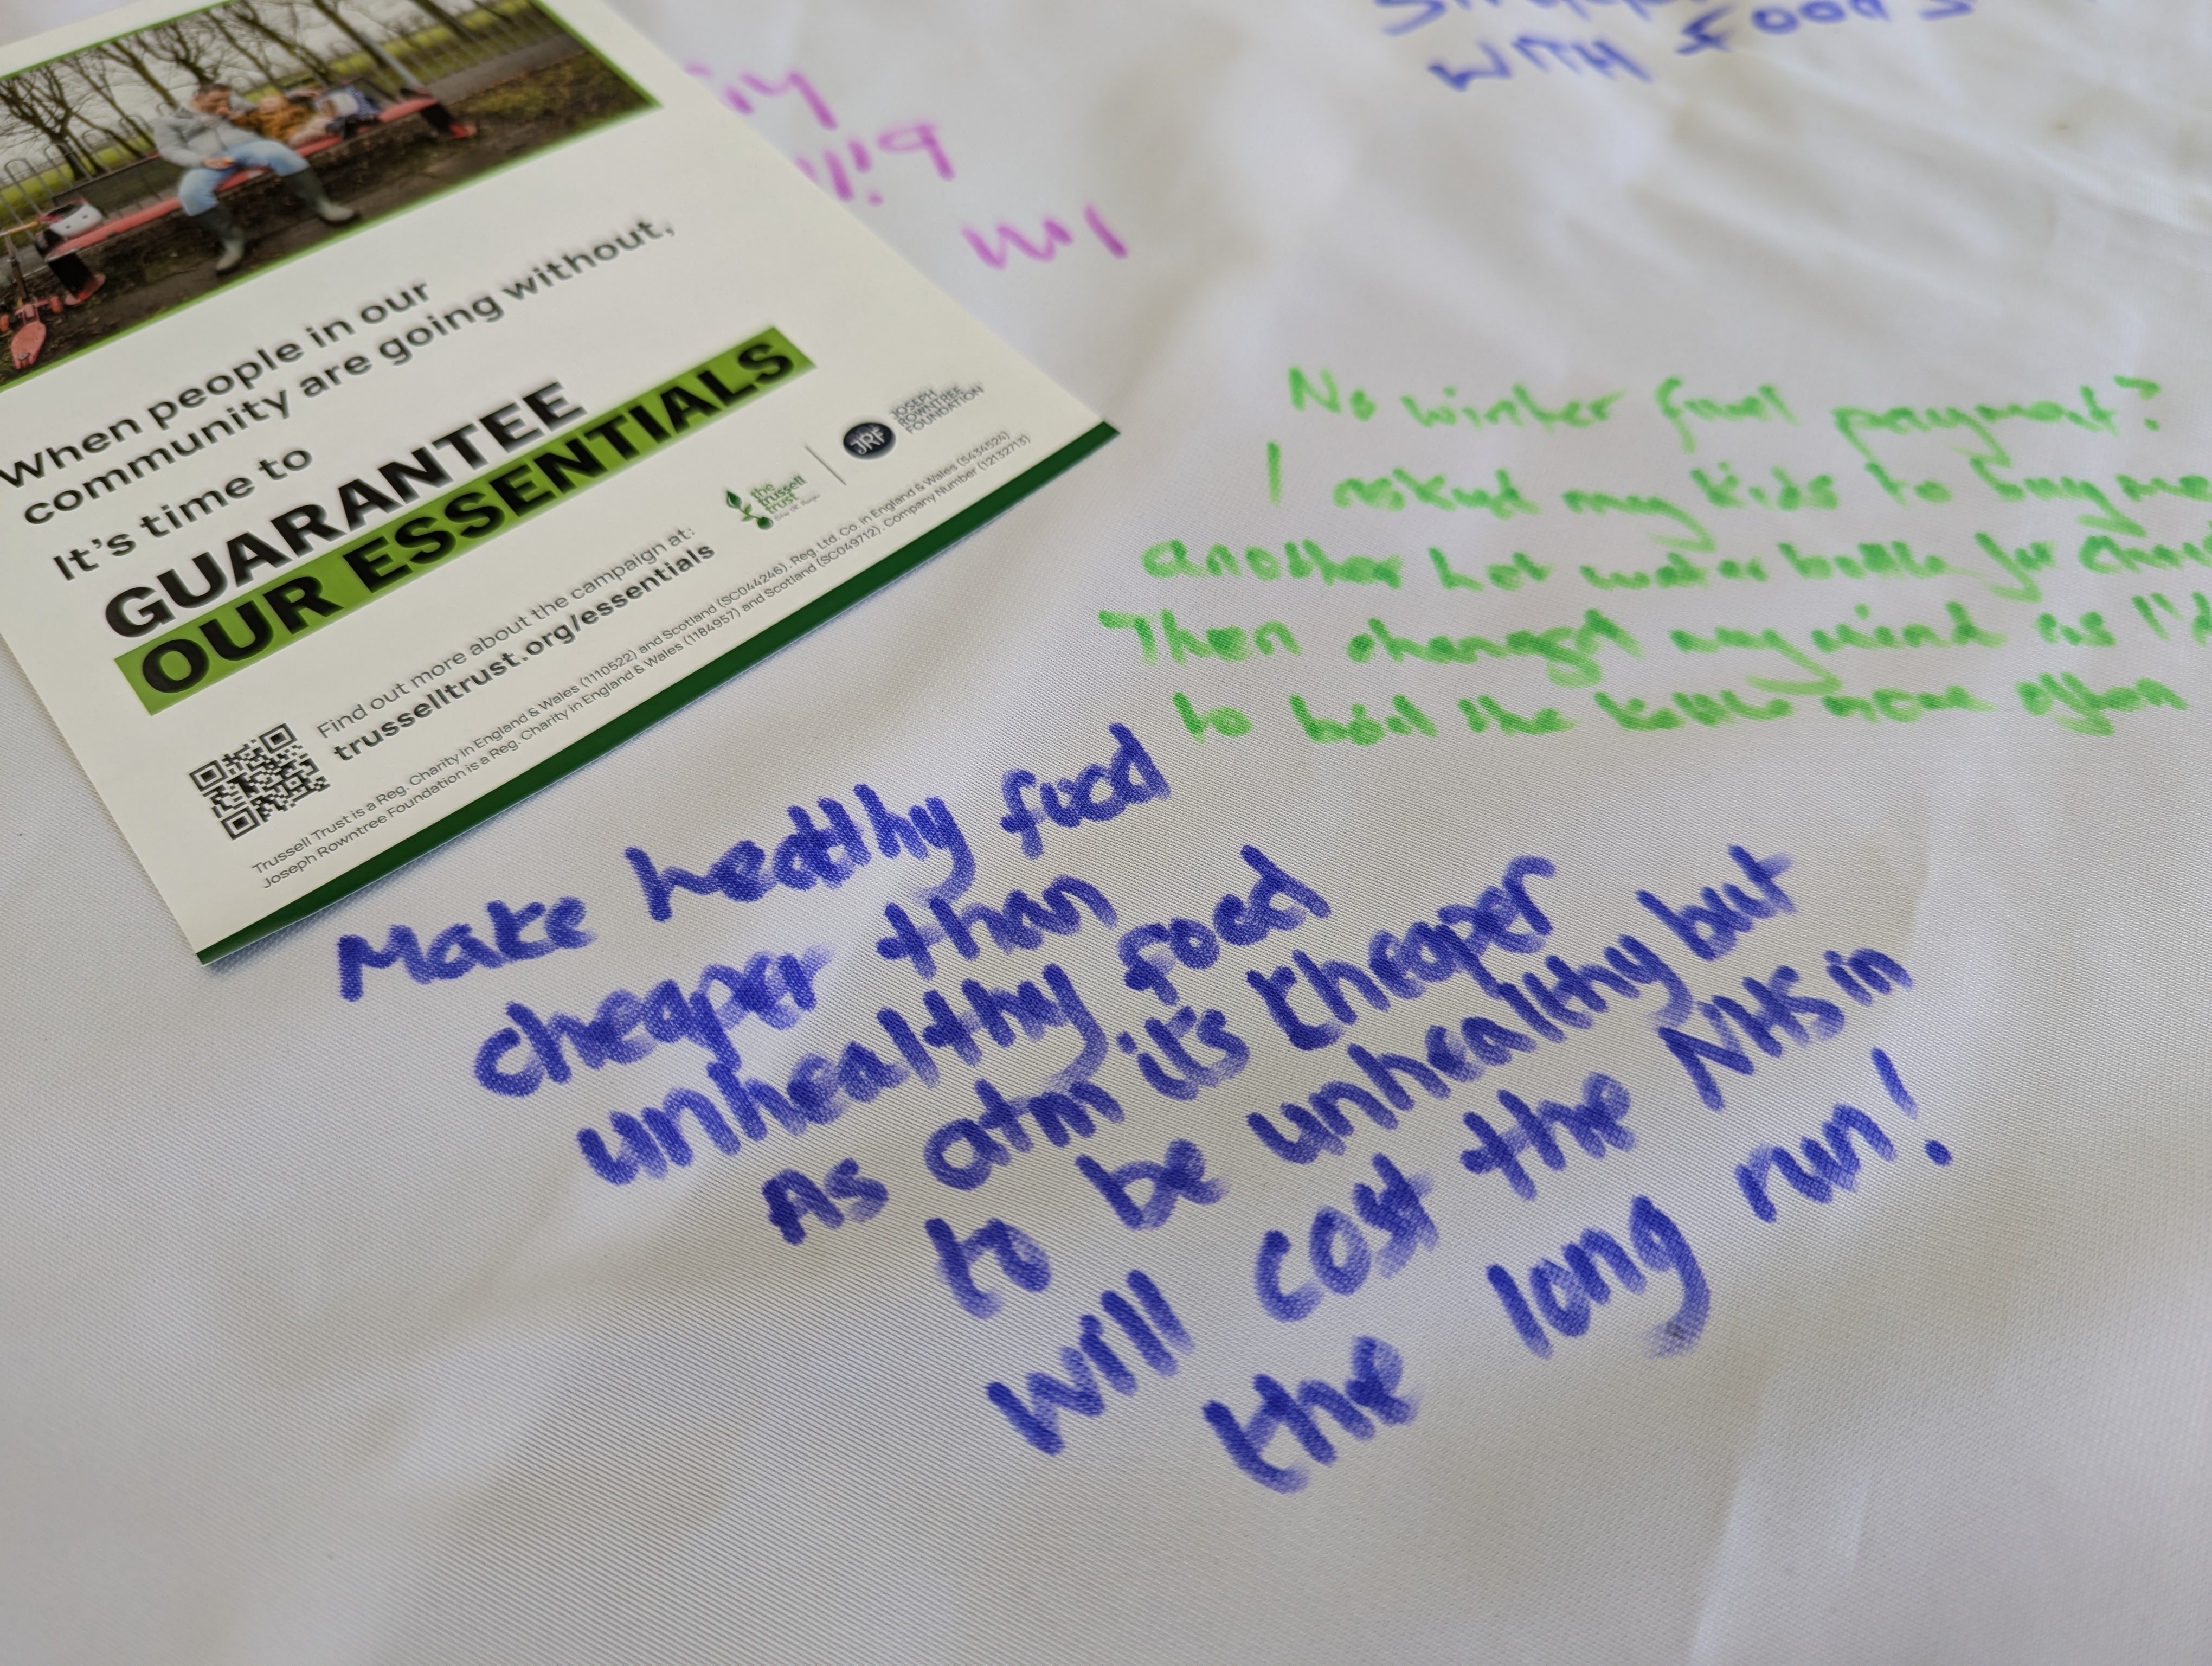 When people in our
community are going without,
It's time to
GUARANTEE
OUR ESSENTIALS
Find out more about the campaign at:
trusselltrust.org/essentials
the
trussell
trust
JRF
JOSEPH
ROWNTREE
FOUNDATION
Trussell Trust is a Reg. Charity in England & Wales (1110522) and Scotland (SC044246). Reg. Ltd. Co. in England & Wales (5434524)
Joseph Rowntree Foundation is a Reg. Charity in England & Wales (1184957) and Scotland (SC049712). Company Number (12132713)
WITH FOODS
No winter fuel payment?
I asked my kids to buy me
another hot water bottle for
Then changed my mind as I'd
to boil the kettle more often
Make healthy food
cheaper than
unhealthy food
As atm it's cheaper
to be unhealthy but
will cost the NHS in
the long run!